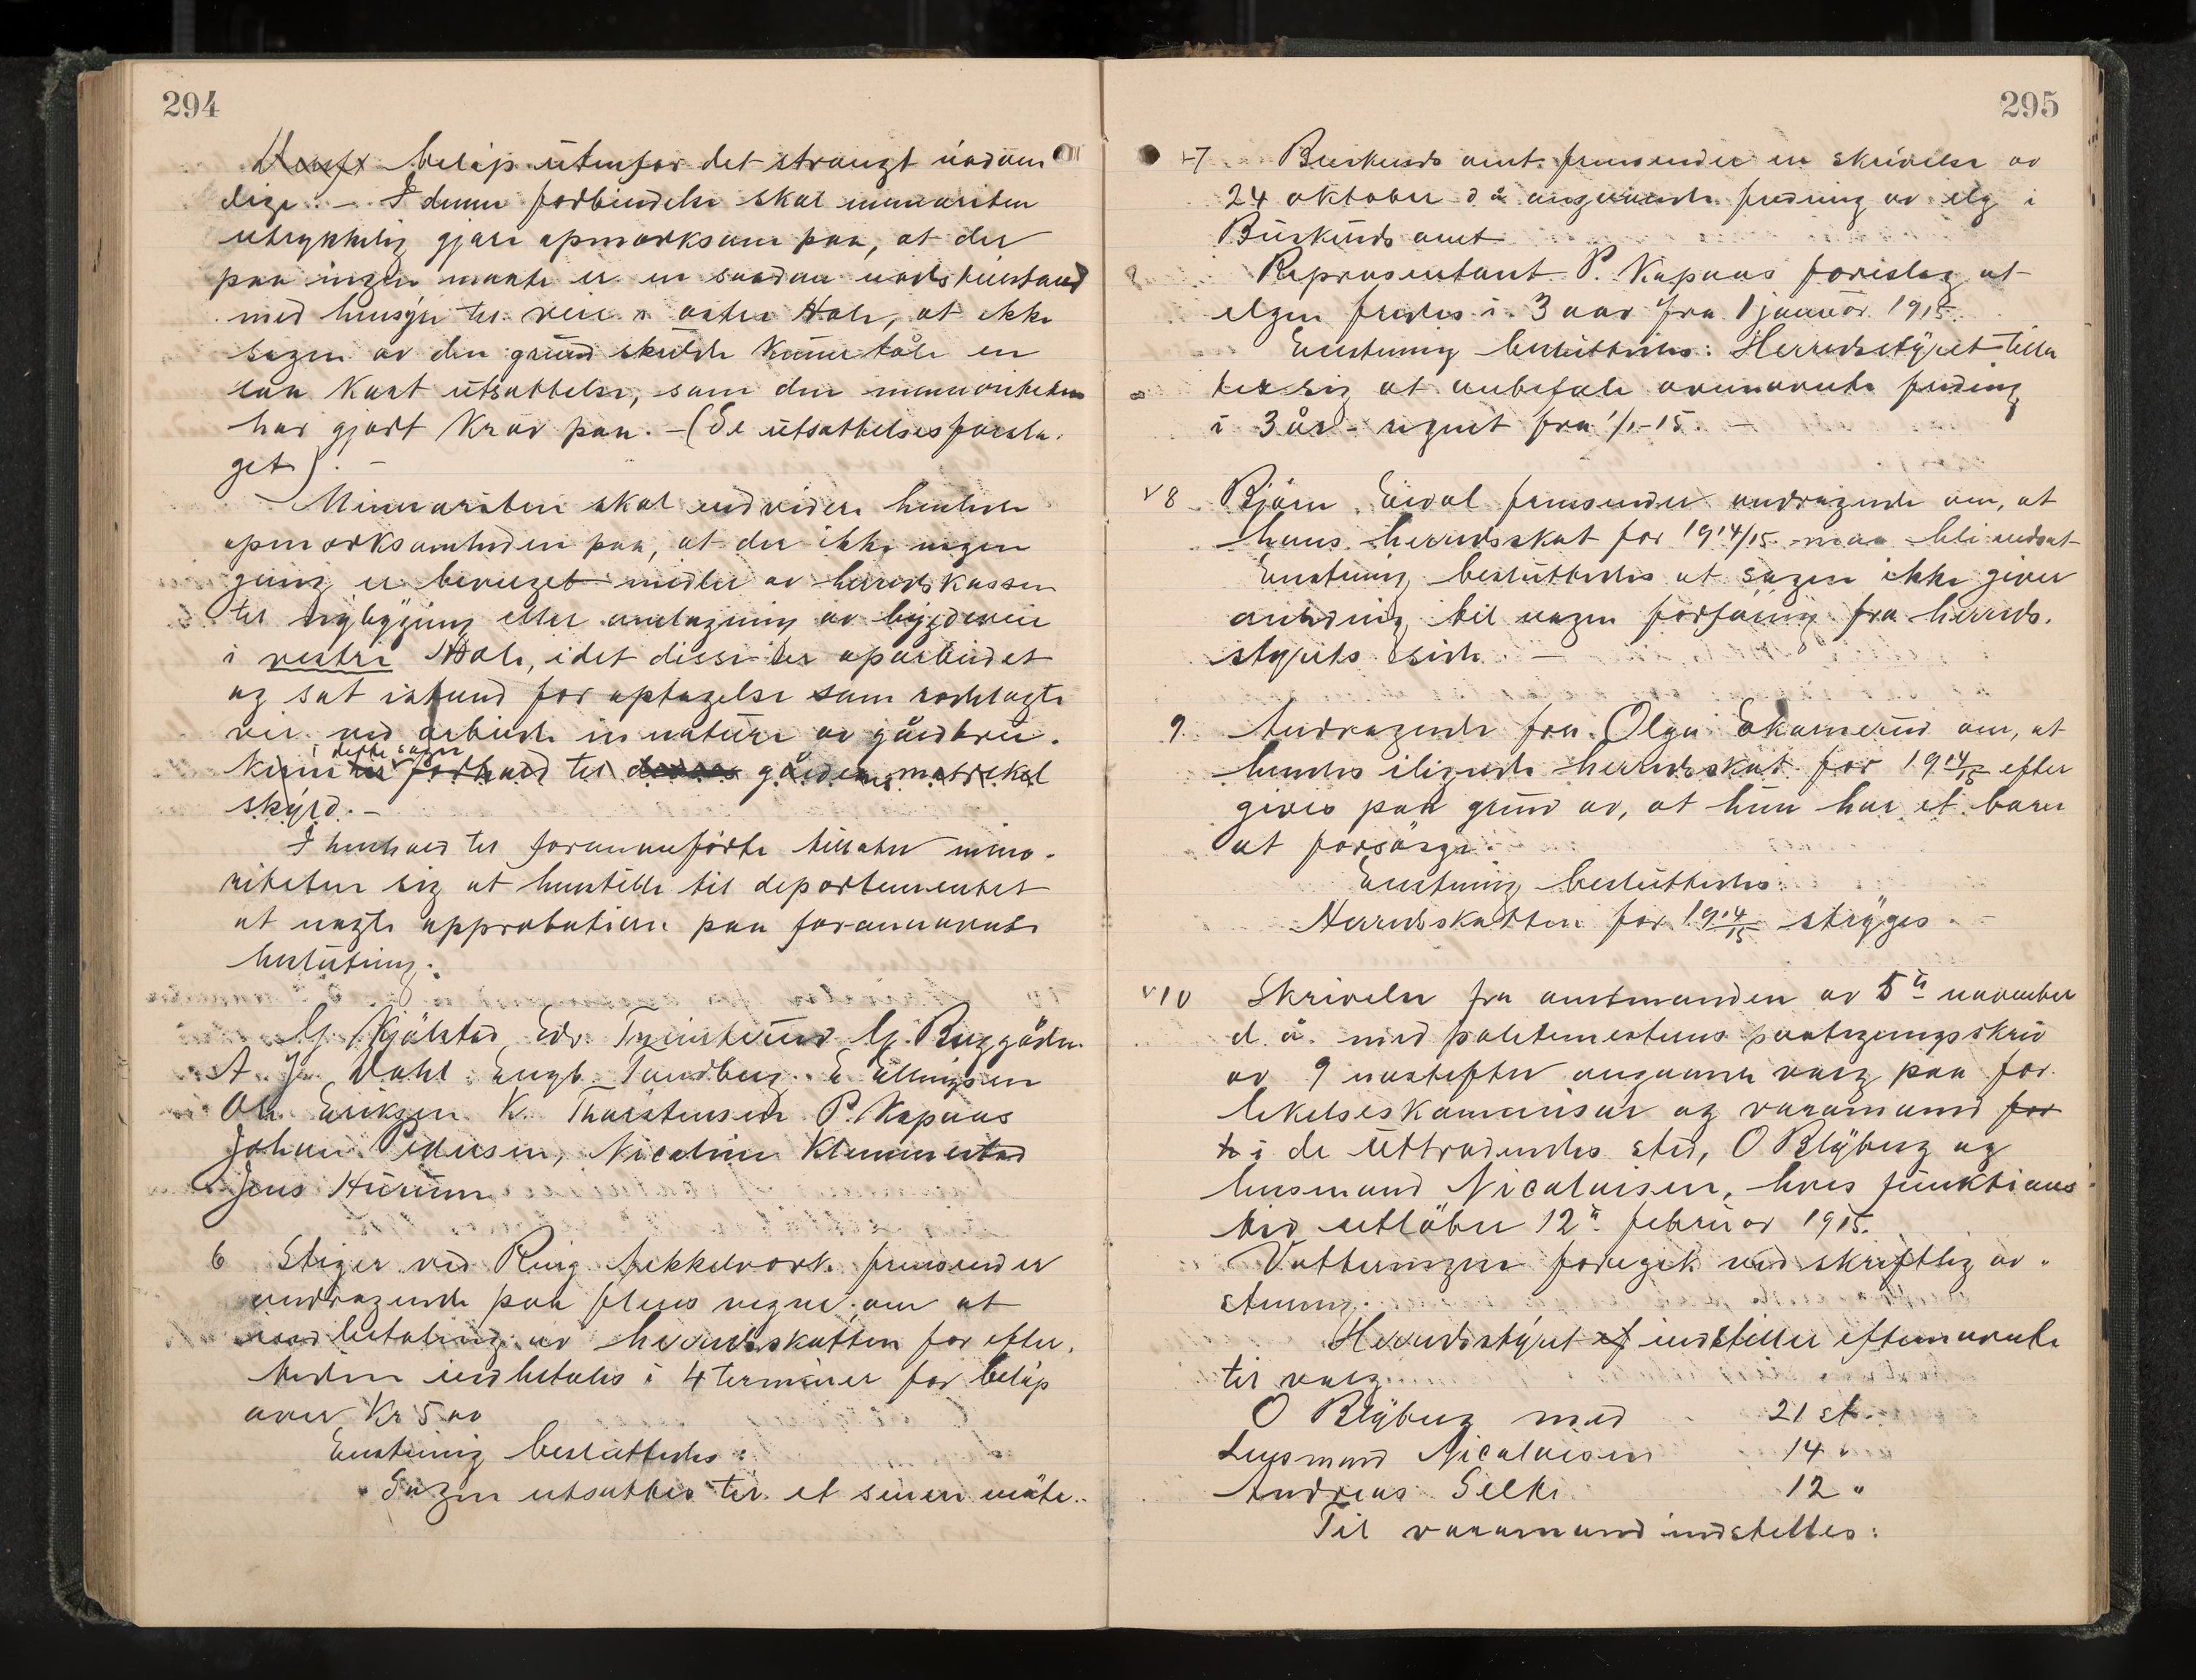 294
beløp utenfor det strengt nødven
dige. — I denne forbindelse skal minoriteten
uttrykkelig gjøre opmerksom paa, at der
paa ingen maate er en saadan nødstilstand
med hensyn til veie i østre Hole, at ikke
sagen av den grund skulde kunne tåle en
saa kort utsættelse, som den minoriteten
har gjort krav paa. — (Se utsættelsesforsla-
get). —
Minoriteten skal endvidere henlede
opmerksomheden paa, at der ikke nogen
gang er bevilget midler av herredskassen
til nybygging eller omlægning av bygdeveie
i vestre Hole, idet disse er oparbeidet
og sat istand for optagelse som rodelagte
veie ved arbeide in natura av gårdbru-
i dette sogn
kerne i forhold til gårdenes matrikel
skyld. —
I henhold til forananførte tillater mino-
riteten sig at henstille til departementet
at negte approbation paa forannevnte
beslutning.
G. Kjölstad Edv. Tjernstund G. Byggöden
A J Dahl Engb. Tandberg. E Ellingsen
Ole Eriksen K. Thorstensen P. Kopaas
Johan Pedersen, Nicoline Klemmetsd
Jens Hurum
6 Stiger ved Ring. fremsender
andragende paa fleres vegne om at
indbetaling av herredsskatten for efter-
tiden indbetales i 4 terminer for beløp
over Kr 5.00
Enstemig besluttedes:
Sagen utsættes til et senere möte.
295
7 Buskeruds amt fremsender en skrivelse av
24 oktober d å angaaende fredning av elg i
Buskeruds amt
Repræsentant P. Kopaas foreslog at
elgen fredes i 3 aar fra 1 januar 1915.
Enstemig besluttedes: Herredsstyret tilla
ter sig at anbefale ovennevnte fredning
i 3 år regnet fra 1/1-15. —
8 Björn Eivol fremsender andragende om, at
hans herredsskat for 1914/15 maa bli nedsat
Enstemig besluttedes at sagen ikke giver
anledning til nogen forføining fra herreds-
styrets side. —
9. Andragende fra Olga Ekornerud om, at
hendes iligned herredsskat for 1914/15 efter
gives paa grund av, at hun har et barn
at forsörge.
Enstemig besluttedes:
Herredsskatten for 1914/15 strÿges. —
10 Skrivelse fra amtmanden av 5te november
d. å. med politimesterens paategningsskriv
av 9 næstefter angaaende valg paa for-
likelseskommisær og varamand for
i de uttrædendes sted, O Blÿberg og
lensmand Nicolaisen, hvis funktions-
tid utlöber 12te februar 1915.
Votteringen foregik ved skriftlig av-
stemning.
Herredsstÿret indstiller eftenevnte
til valg.
O Blÿberg med 21 st.
Lensmand Nicolaisen 14 "
Andreas Selke 12 "
Til varamand indstilles: